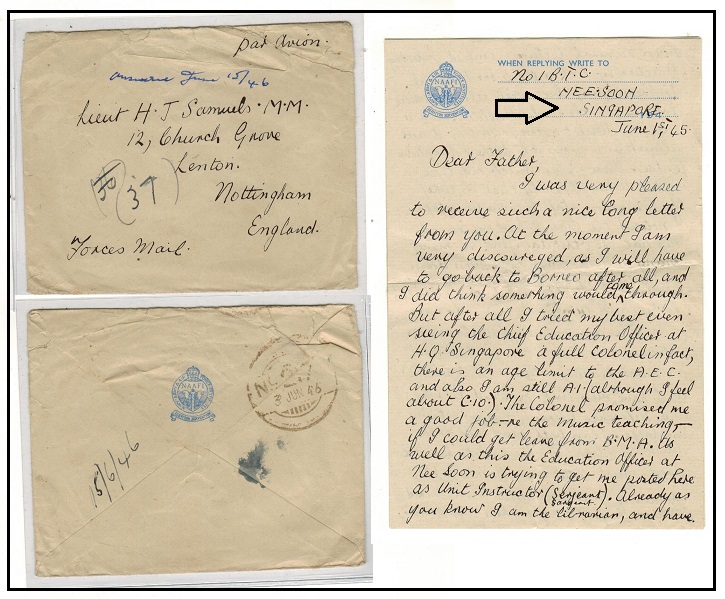 Par Avion.
June 15/46
Lieut H. J Samuels. M.M.
12, Church Grove
Lenton.
Nottingham
England.
Forces Mail.
37
NAAFI
3 JUN 46
15/6/46
NAAFI
WHEN REPLYING WRITE TO
No 1 B.T.C.
NEE SOON
SINGAPORE.
June 1st, 45.
Dear Father,
I was very pleased
to receive such a nice long letter
from you. At the moment I am
very discoureged, as I will have
to go back to Borneo after all, and
I did think something would come through.
But after all I tried my best even
seeing the Chief Education Officer at
H.Q. Singapore a full Colonel in fact,
there is an age limit to the A.E.C.
and also I am still A1 (although I feel
about C.10.). The Colonel promised me
a good job - re the music teaching -
if I could get leave from B.M.A. As
well as this the Education Officer at
Nee Soon is trying to get me posted here
as Unit Instructor (Serjeant). Already as
Sargent
you know I am the librarian, and have.